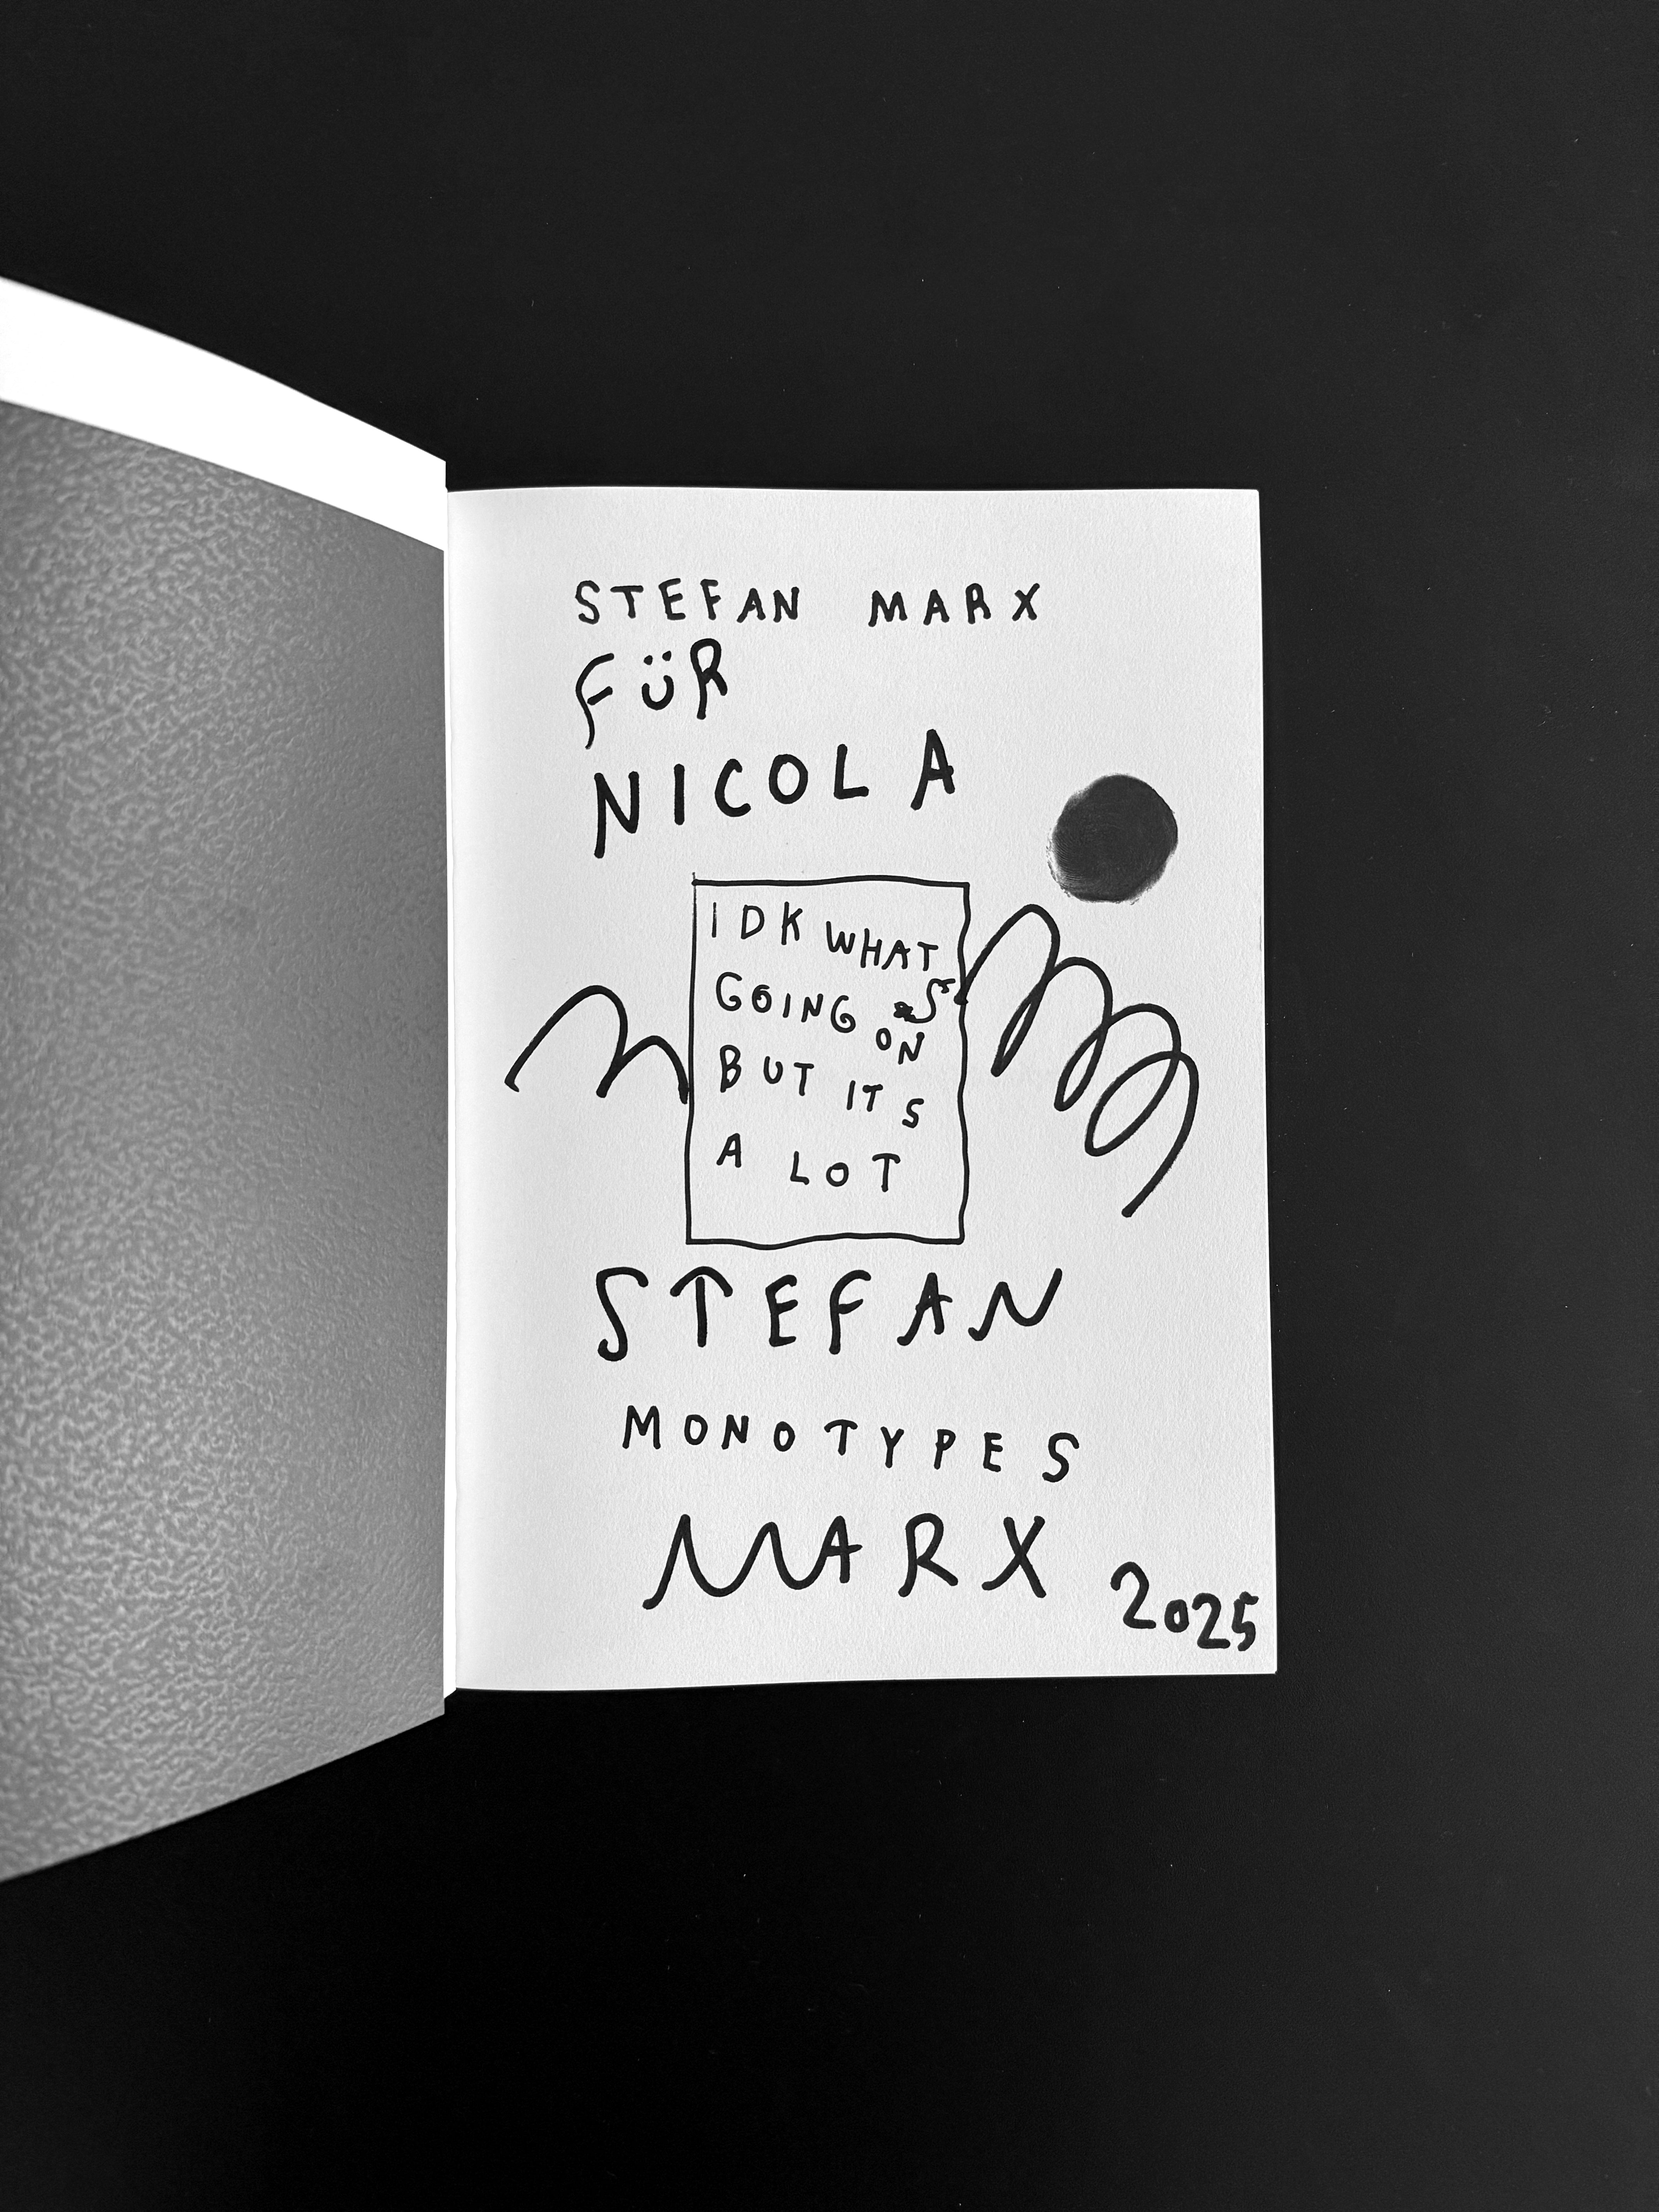 STEFAN MARX
FÜR
NICOLA
IDK WHAT
GOING
ON
BUT ITS
A LOT
STEFAN
MONOTYPES
MARX
2025